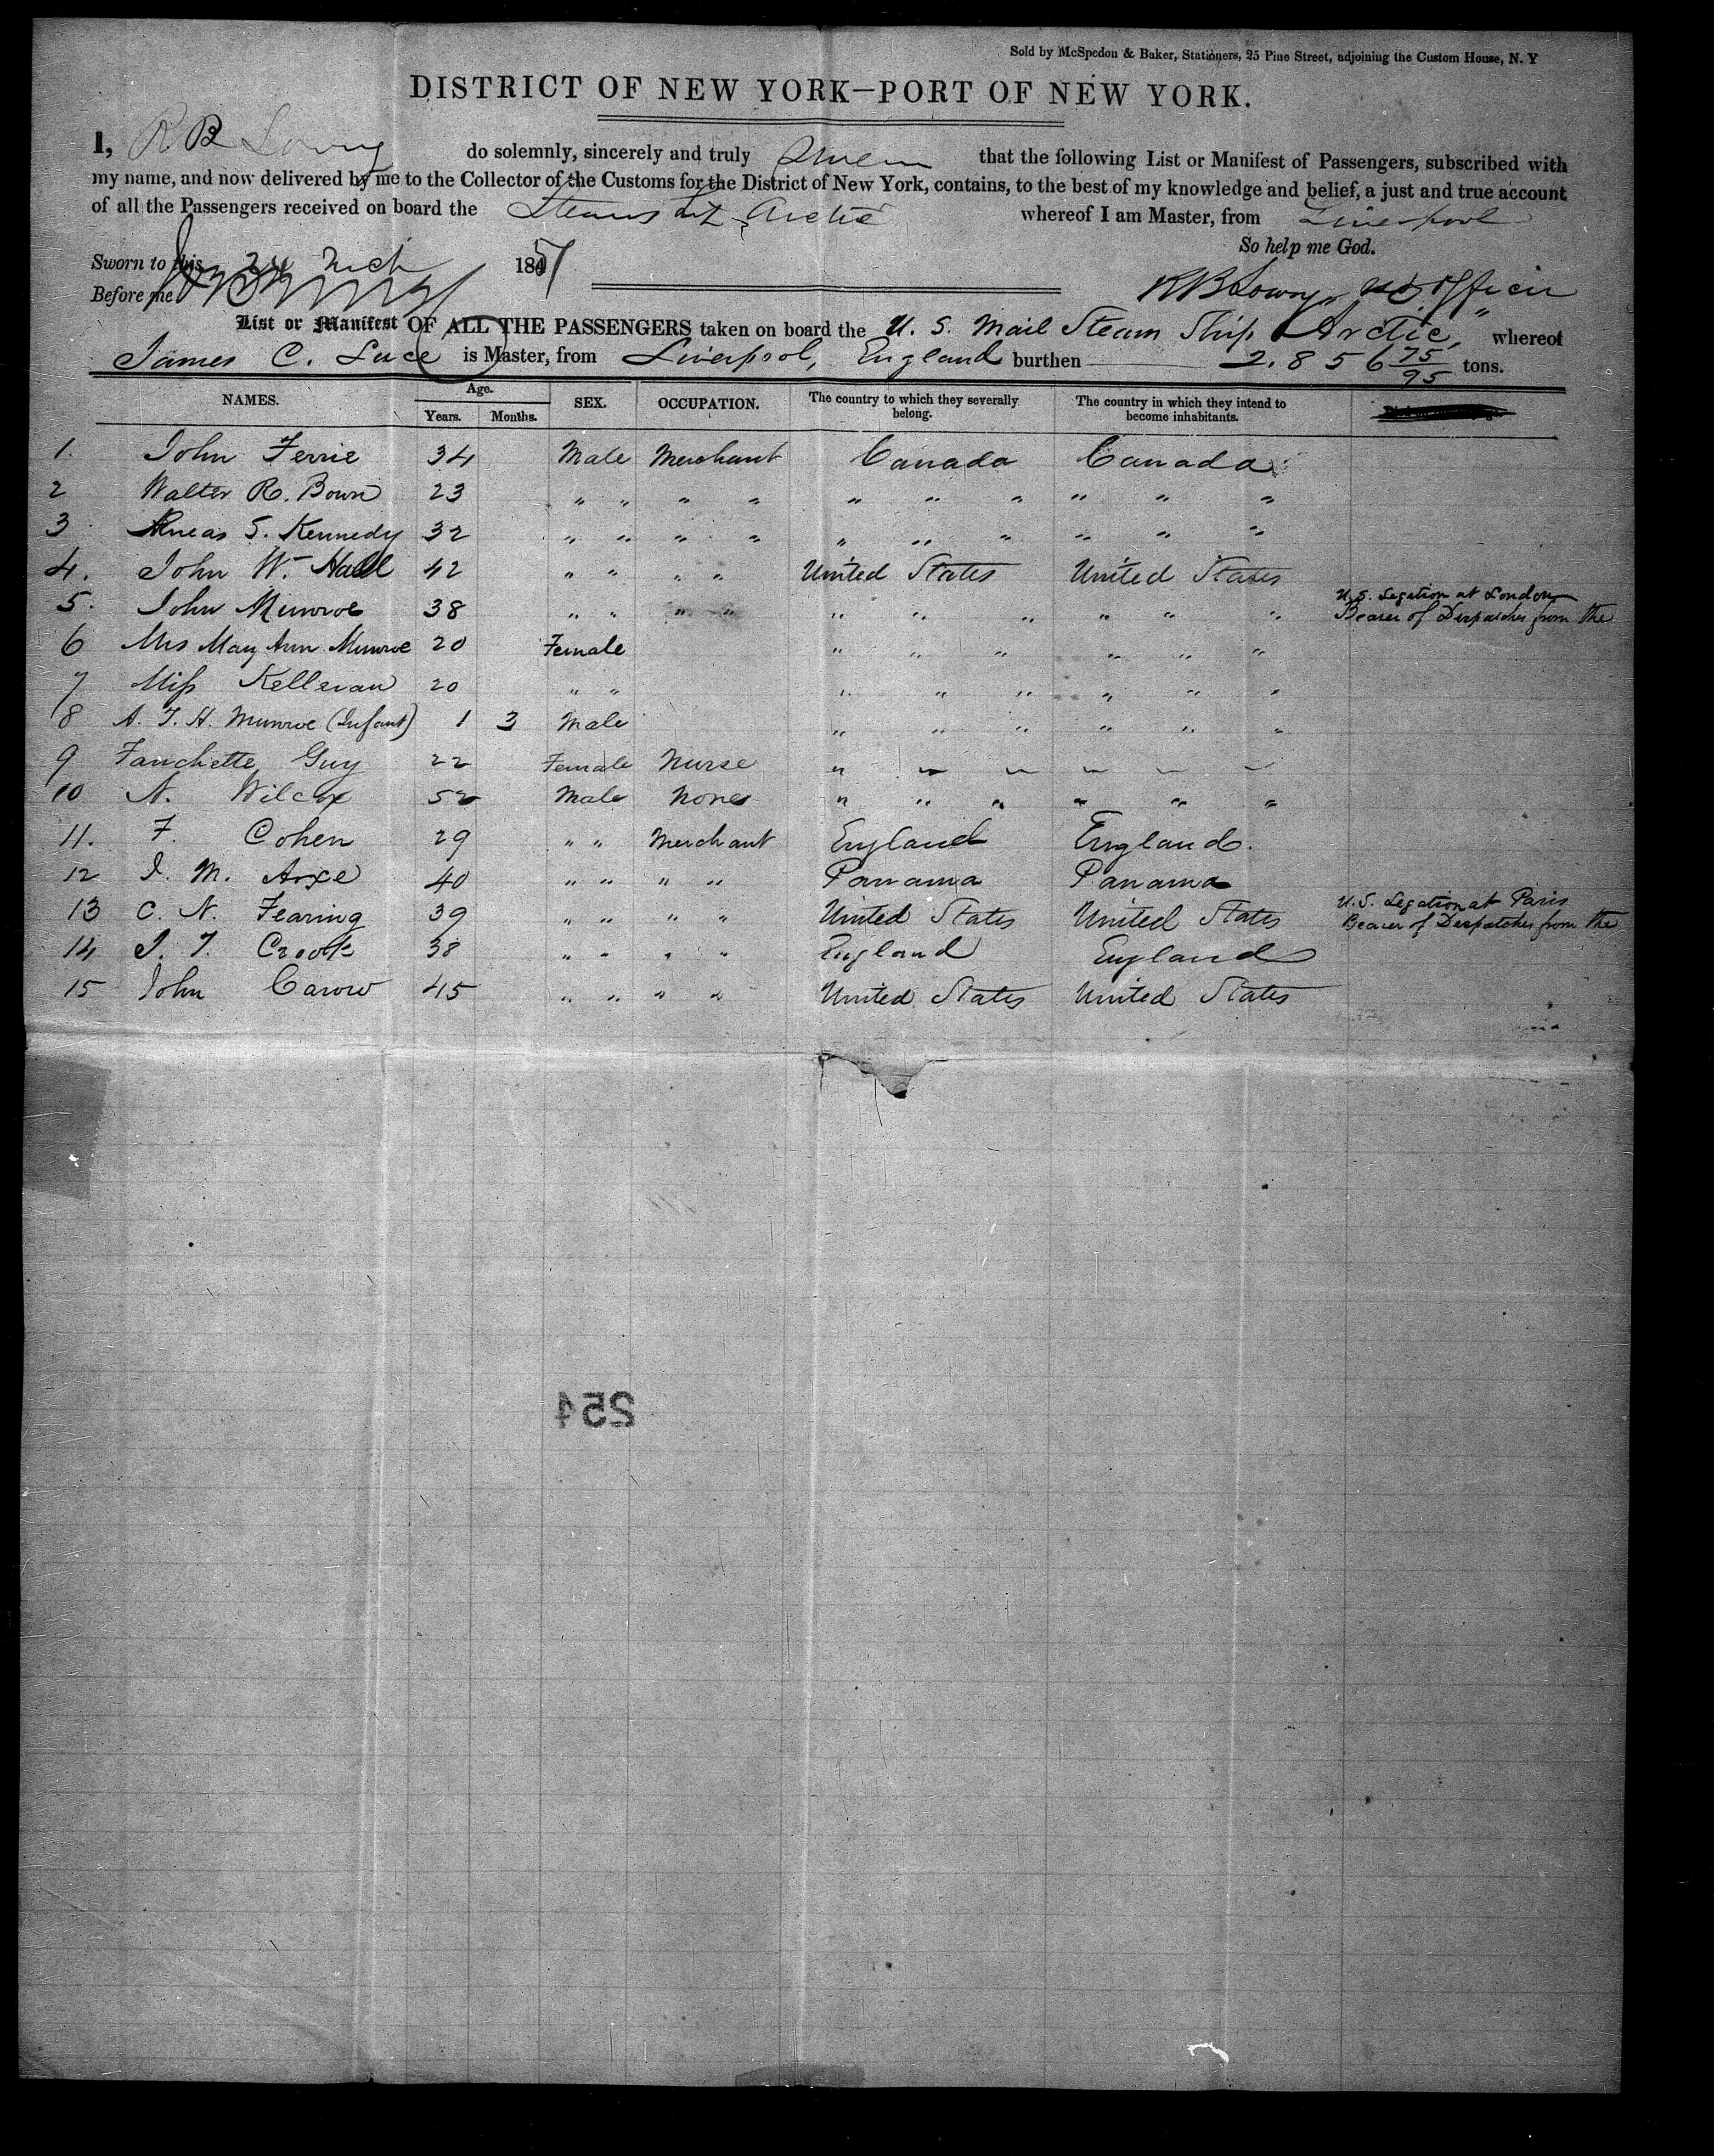 Sold by McSpedon & Baker, Stationers, 25 Pine Street, adjoining the Custom House, N. Y
DISTRICT OF NEW YORK—PORT OF NEW YORK.
I, R B Lowry do solemnly, sincerely and truly swear that the following List or Manifest of Passengers, subscribed with
my name, and now delivered by me to the Collector of the Customs for the District of New York, contains, to the best of my knowledge and belief, a just and true account
of all the Passengers received on board the Steamship Arctic whereof I am Master, from Liverpool
So help me God.
Sworn to this 24 Mch 1851
Before me
R B Lowry, Officer
List or Manifest OF ALL THE PASSENGERS taken on board the U. S. Mail Steam Ship "Arctic," whereof
James C. Luce is Master, from Liverpool, England burthen 2.856 75/95 tons.
NAMES. Age. Years. Months. SEX. OCCUPATION. The country to which they severally belong. The country in which they intend to become inhabitants.
1. John Ferrie 34 Male Merchant Canada Canada
2 Walter R. Bown 23 " " " " " " " " " "
3 Aneas S. Kennedy 32 " " " " " " " " " "
4. John W. Hall 42 " " " " United States United States
5. John Munroe 38 " " " " " " " " " " U. S. Legation at London Bearer of Despatches from the
6 Mrs Mary Ann Munroe 20 Female " " " " " "
7 Miss Kellevan 20 " " " " " " " "
8 A. F. H. Munroe (Infant) 1 3 Male " " " " " "
9 Fanchette Guy 22 Female Nurse " " " " " "
10 N. Wilcox 52 Male None " " " " " "
11. F. Cohen 29 " " Merchant England England.
12 J. M. Arxe 40 " " " " Panama Panama
13 C. N. Fearing 39 " " " " United States United States U.S. Legation at Paris Bearer of Despatches from the
14 J. T. Crook 38 " " " " England England
15 John Carow 45 " " " " United States United States
254